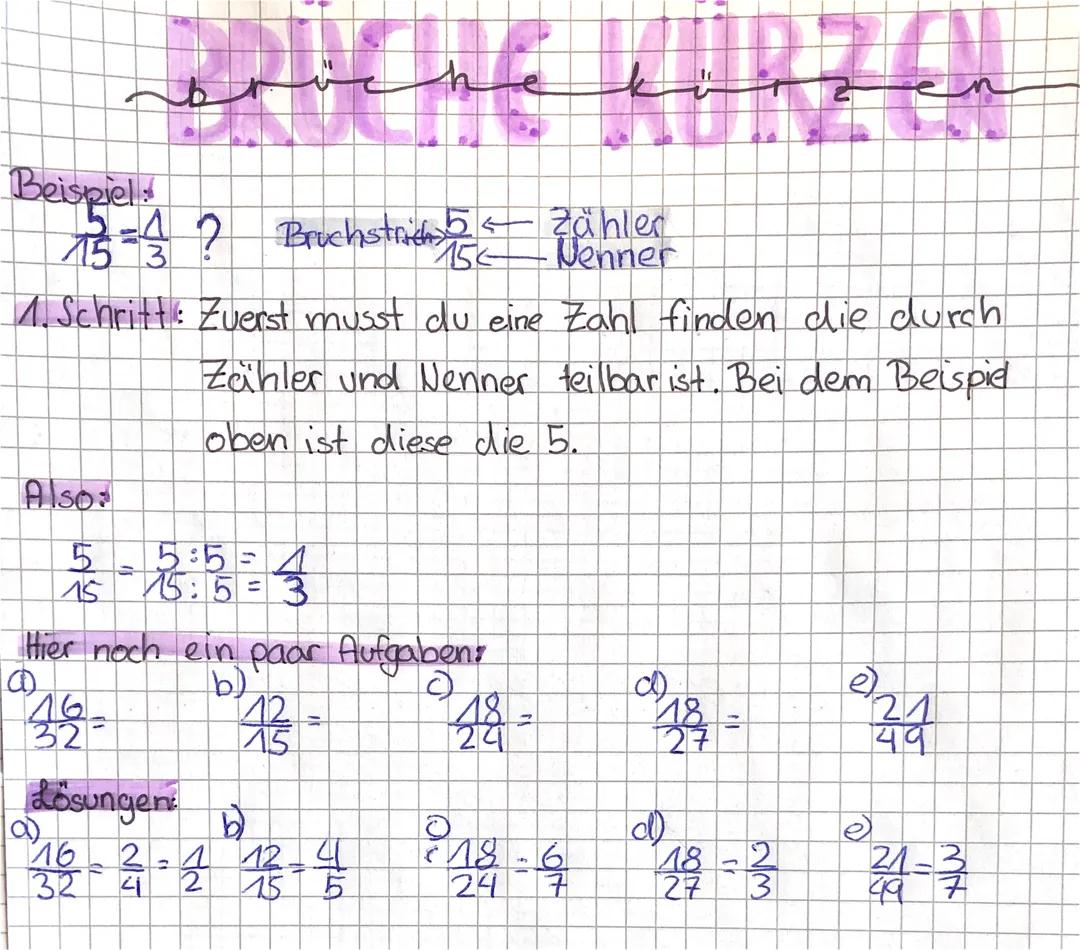 BRÜCHE KÜRZEN
brüche kürzen
Beispiel:
5/15 = 1/3 ? Bruchstrich→ 5/15 ← Zähler ← Nenner
1. Schritt: Zuerst musst du eine Zahl finden die durch
Zähler und Nenner teilbar ist. Bei dem Beispiel
oben ist diese die 5.
Also:
5/15 = 5:5/15:5 = 1/3
Hier noch ein paar Aufgaben:
a) 16/32 = b) 12/15 = c) 18/24 = d) 18/27 = e) 21/49
Lösungen:
a) 16/32 = 2/4 = 1/2 b) 12/15 = 4/5 c) 18/24 = 6/7 d) 18/27 = 2/3 e) 21/49 = 3/7